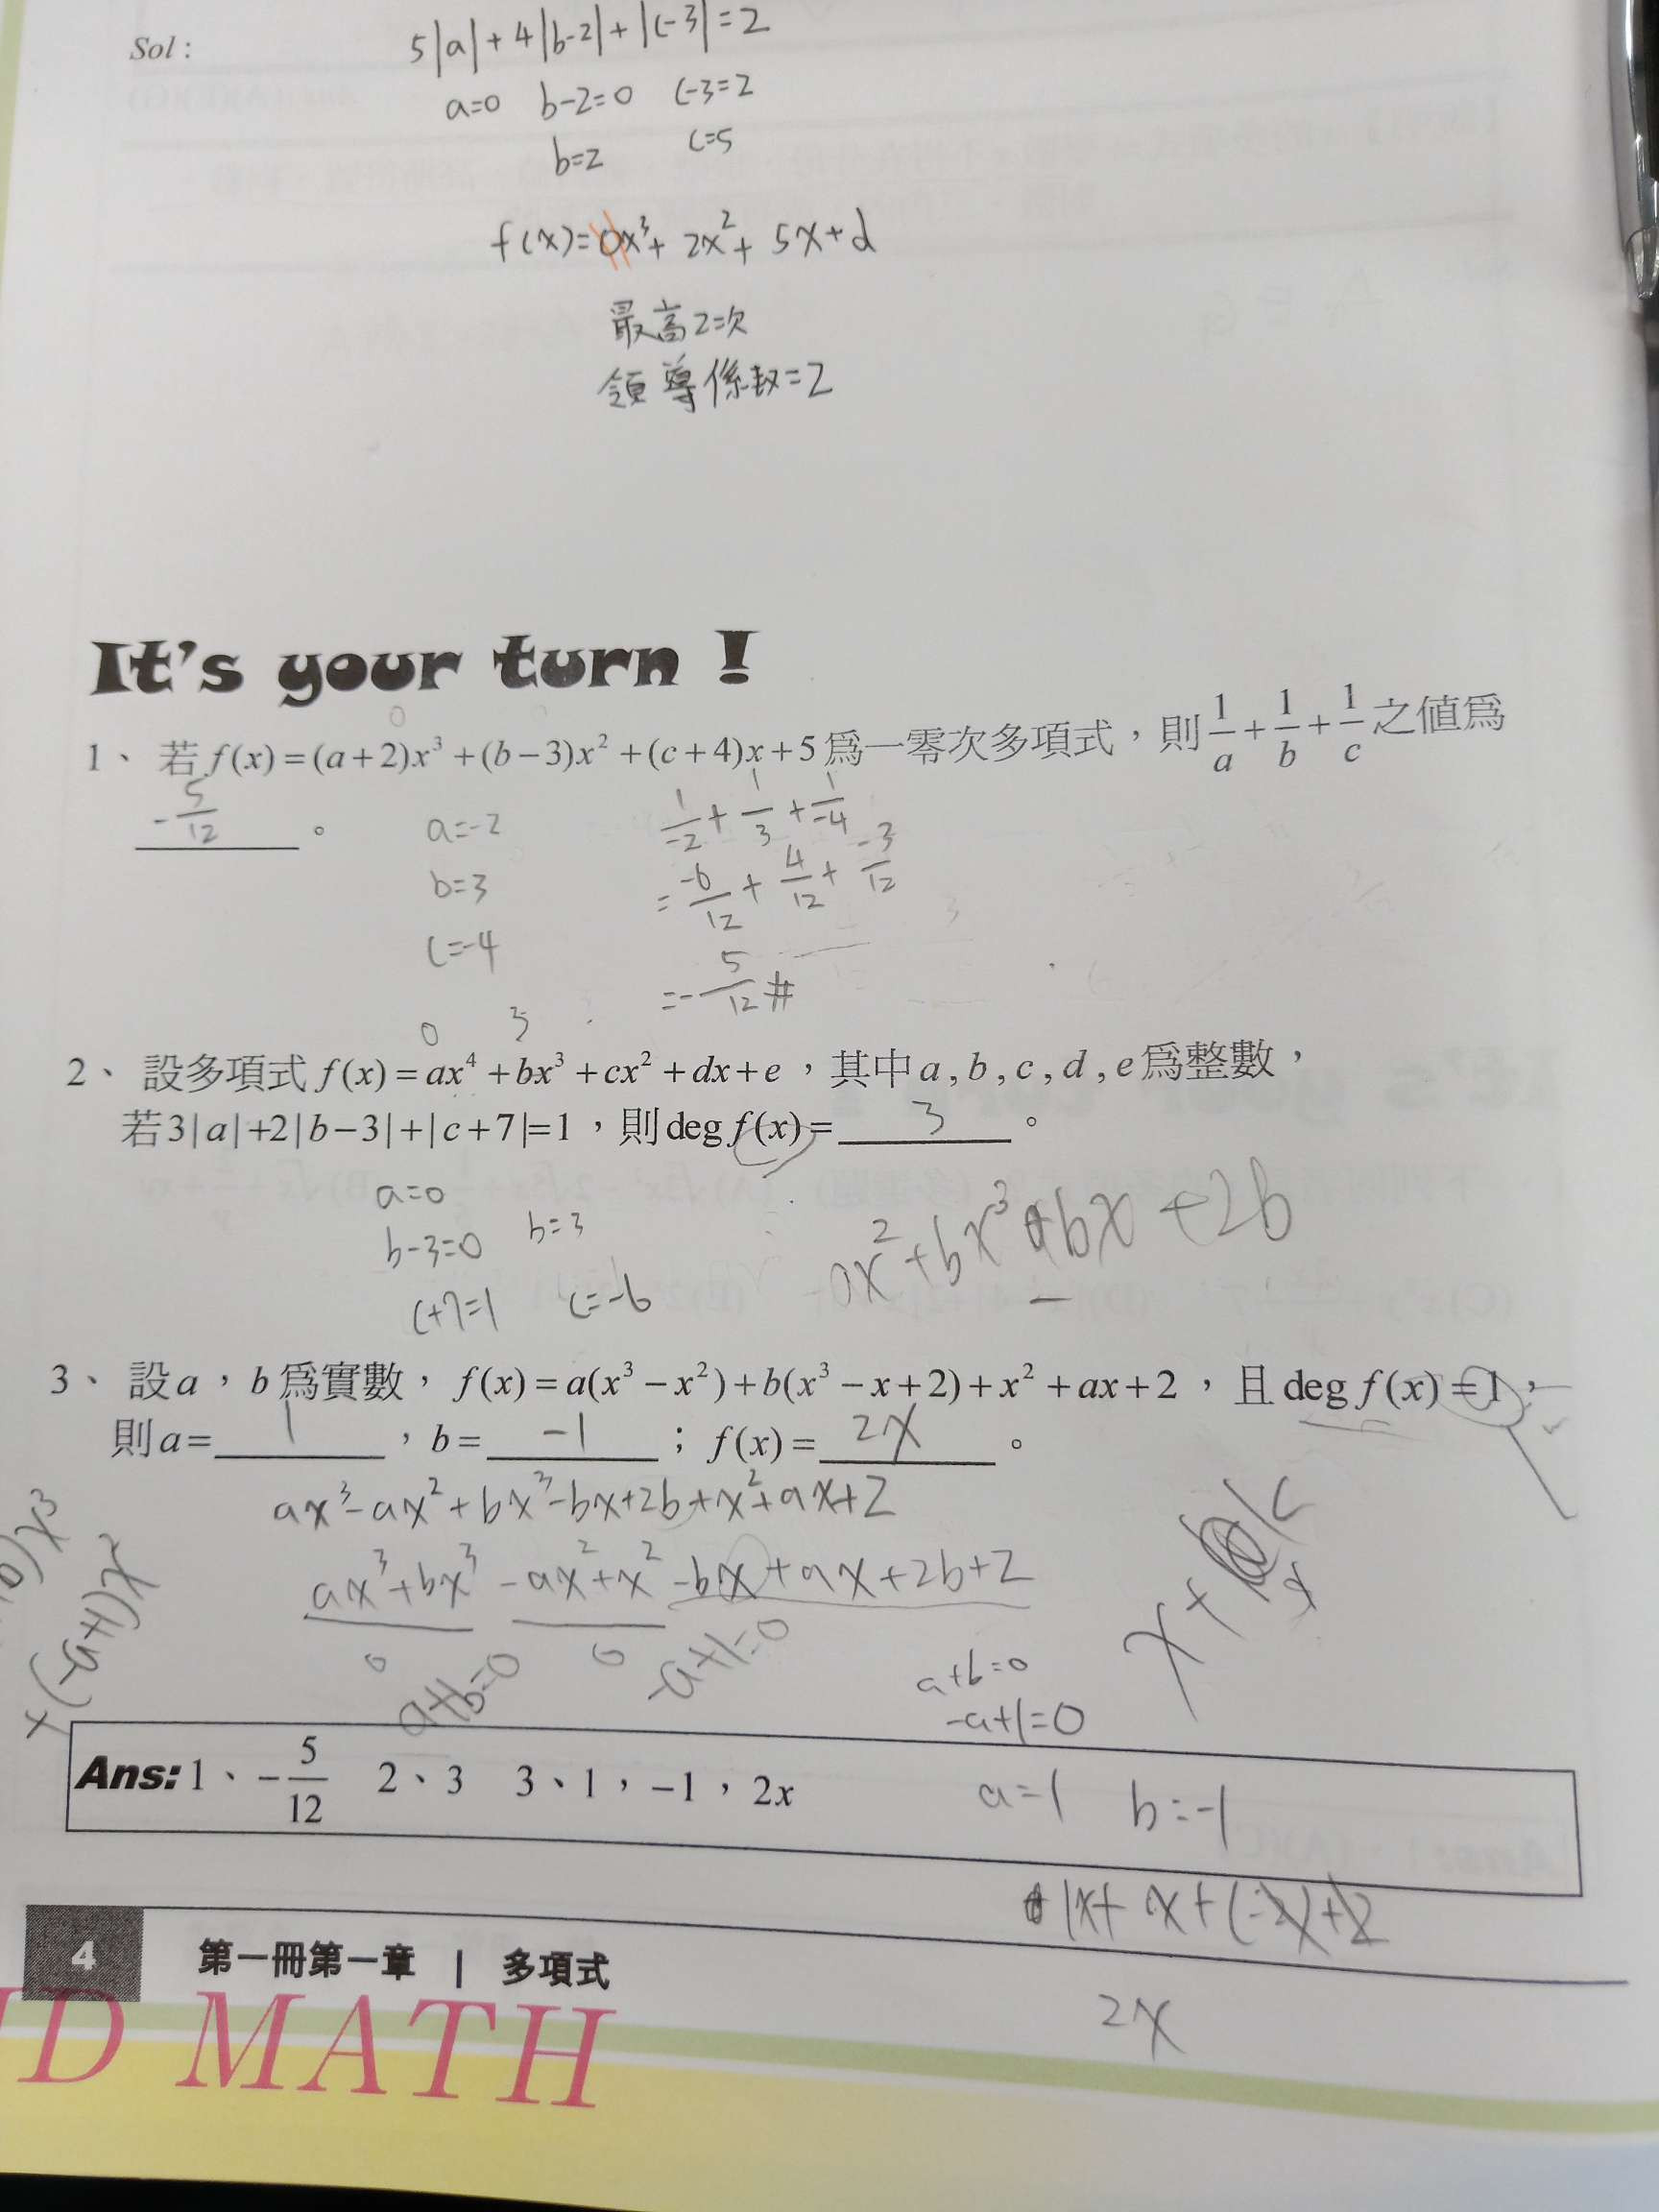 Sol :
5|a|+4|b-2|+|c-3|=2
a=0 b-2=0 c-3=2
b=2 c=5
f(x)=0x³+2x²+5x+d
最高2次
領導係数=2
It's your turn !
0
1、 若 f(x)=(a+2)x³+(b−3)x²+(c+4)x+5 爲一零次多項式，則 1/a + 1/b + 1/c 之値爲
-5/12 。
a=-2 1/-2 + 1/3 + 1/-4
b=3 = -6/12 + 4/12 + -3/12
c=-4
=-5/12 #
0 3
2、 設多項式 f(x)=ax⁴+bx³+cx²+dx+e ，其中 a , b , c , d , e 爲整數，
若 3|a|+2|b−3|+|c+7|=1 ，則 deg f(x)= 3 。
a=0
b-3=0 b=3
c+7=1 c=-6
3、 設 a ， b 爲實數， f(x)=a(x³−x²)+b(x³−x+2)+x²+ax+2 ， 且 deg f(x)=1 ，
則 a= 1 ， b= -1 ； f(x)= 2x 。
ax³-ax²+bx³-bx+2b+x²+ax+2
ax³+bx³-ax²+x²-bx+ax+2b+2
0 0
a+b=0 -a+1=0
+(-a+1)x²
a+b=0
-a+1=0
Ans: 1、−5/12 2、3 3、1，−1，2x
a=1 b=-1
2x
4 第一冊第一章 | 多項式
D MATH